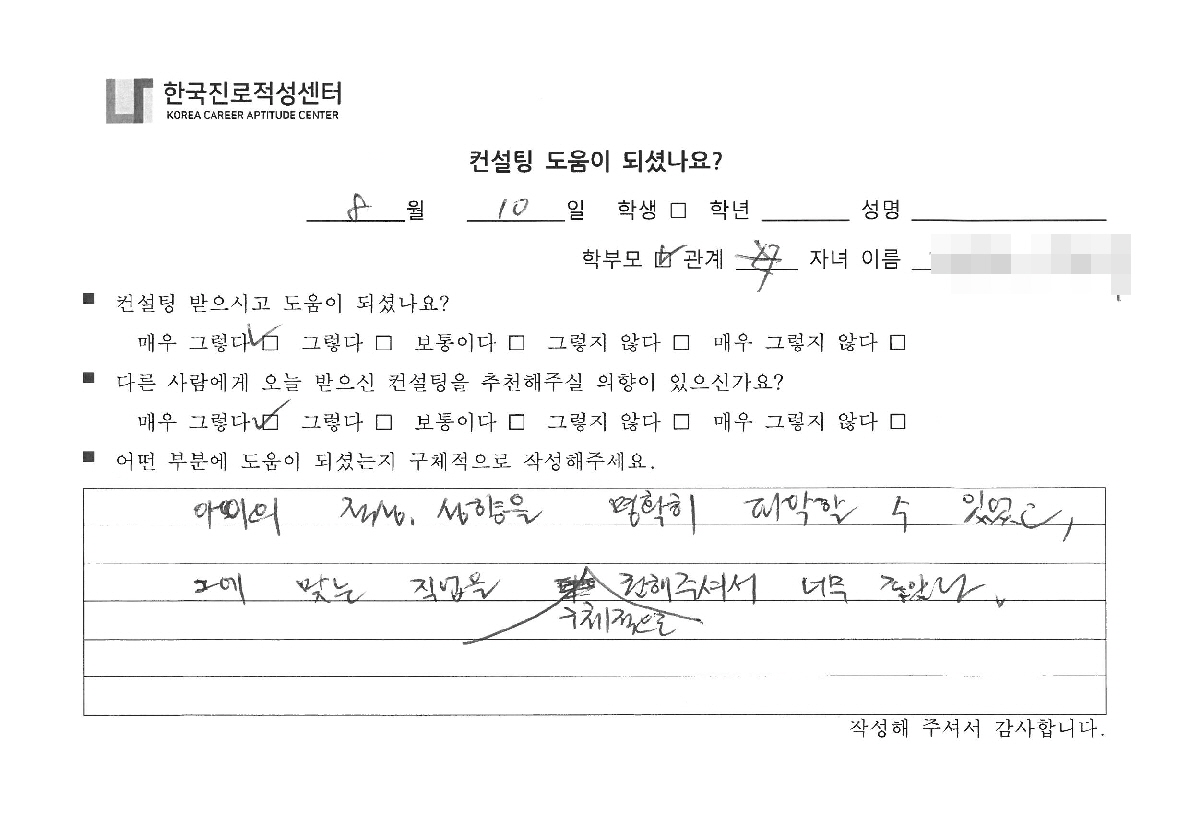 한국진로적성센터
KOREA CAREER APTITUDE CENTER
컨설팅 도움이 되셨나요?
8 월 10 일 학생 □ 학년 성명
학부모 ☑ 관계 자녀 이름
■ 컨설팅 받으시고 도움이 되셨나요?
매우 그렇다 ☑ 그렇다 □ 보통이다 □ 그렇지 않다 □ 매우 그렇지 않다 □
■ 다른 사람에게 오늘 받으신 컨설팅을 추천해주실 의향이 있으신가요?
매우 그렇다 ☑ 그렇다 □ 보통이다 □ 그렇지 않다 □ 매우 그렇지 않다 □
■ 어떤 부분에 도움이 되셨는지 구체적으로 작성해주세요.
아이의 적성, 성향을 명확히 파악할 수 있었고,
그에 맞는 직업을 추천해주셔서 너무 좋았다.
구체적으로
작성해 주셔서 감사합니다.